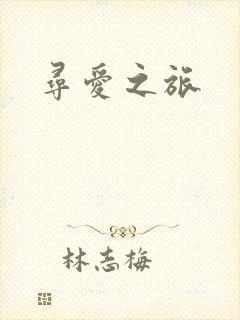 尋愛之旅
林志梅